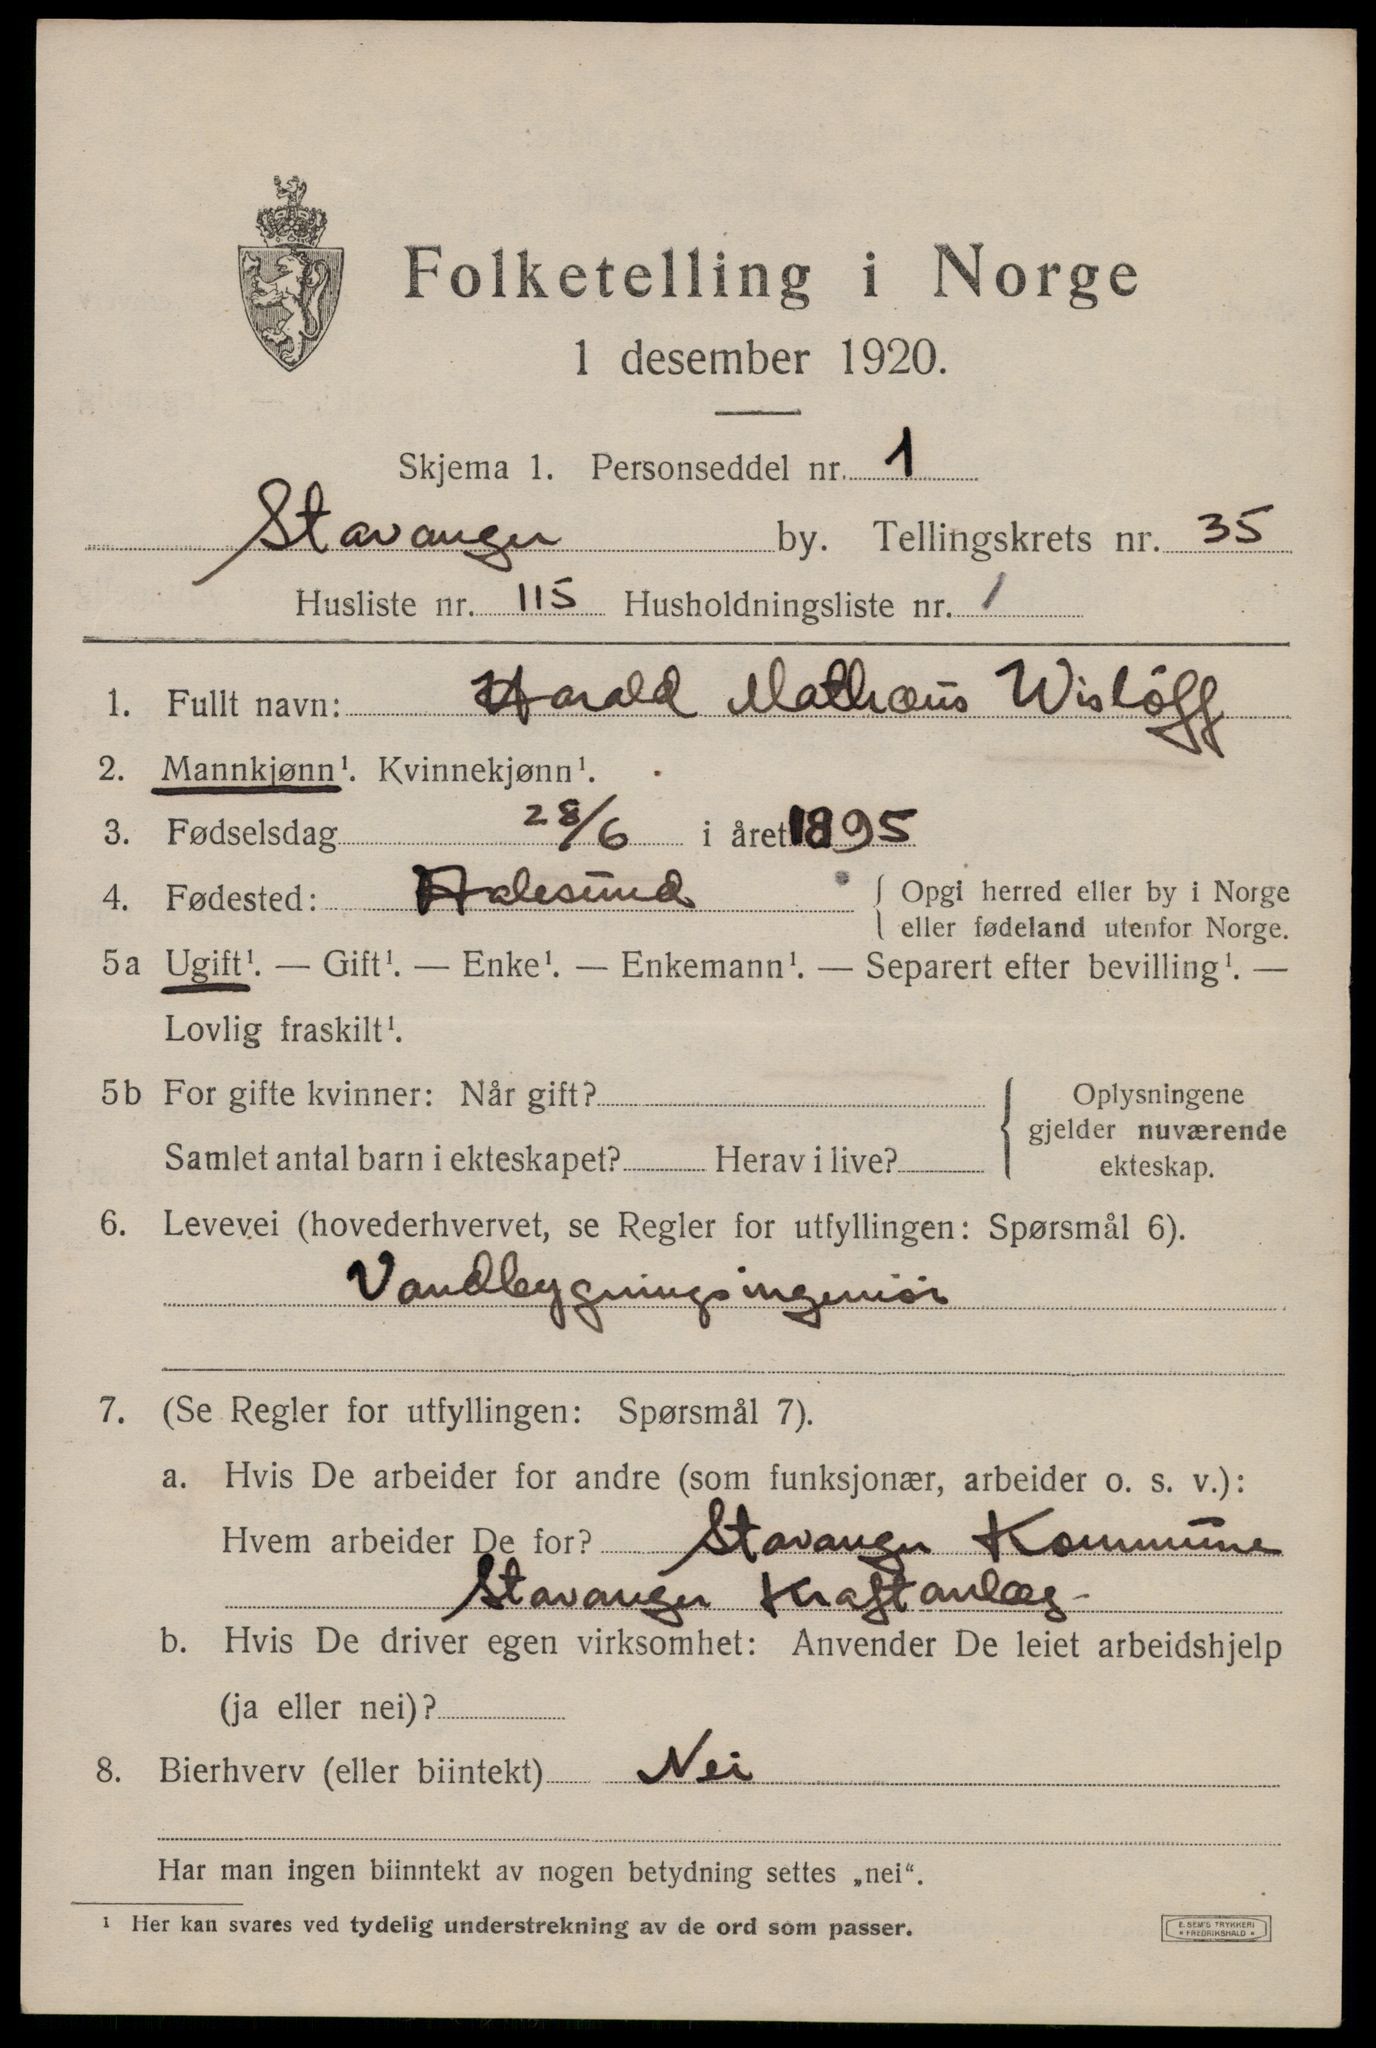 Folketelling i Norge
1 desember 1920.
Skjema 1. Personseddel nr. 1
Stavanger by. Tellingskrets nr. 35
Husliste nr. 115 Husholdningsliste nr. 1
1. Fullt navn: Harald Mathæus Wisløff
2. Mannkjønn¹. Kvinnekjønn¹.
3. Fødselsdag 28/6 i året 1895
4. Fødested: Aalesund { Opgi herred eller by i Norge
eller fødeland utenfor Norge.
5a Ugift¹. — Gift¹. — Enke¹. — Enkemann¹. — Separert efter bevilling¹. —
Lovlig fraskilt¹.
5b For gifte kvinner: Når gift? { Oplysningene
gjelder nuværende
Samlet antal barn i ekteskapet? Herav i live? ekteskap.
6. Levevei (hovederhvervet, se Regler for utfyllingen: Spørsmål 6).
Vandbygningsingeniør
7. (Se Regler for utfyllingen: Spørsmål 7).
a. Hvis De arbeider for andre (som funksjonær, arbeider o. s. v.):
Hvem arbeider De for? Stavanger Kommune
Stavanger Kraftanlæg-
b. Hvis De driver egen virksomhet: Anvender De leiet arbeidshjelp
(ja eller nei)?
8. Bierhverv (eller biintekt) Nei
Har man ingen biinntekt av nogen betydning settes „nei“.
¹ Her kan svares ved tydelig understrekning av de ord som passer.
E. SEM'S TRYKKERI
* FREDRIKSHALD *